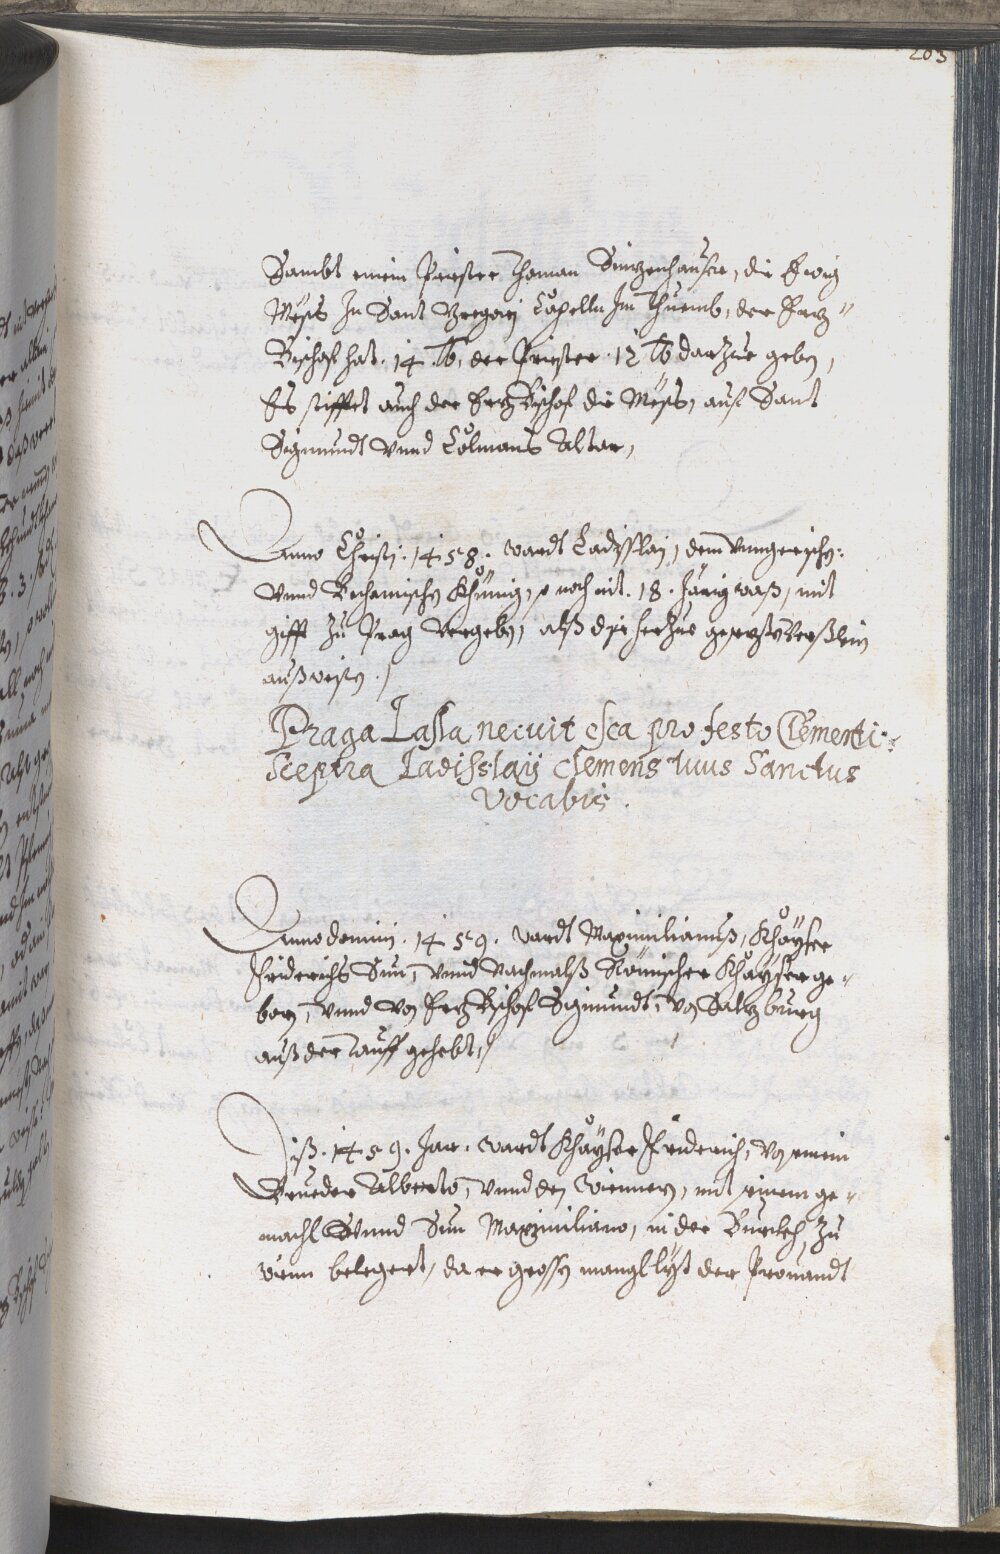 203
Sambt einem Priester Thoman Sinzenhauser, die Ewig
Mëss In Sant Gregorj Capelln Im Thuemb, der Erz-
Bischof hat .14. lb, der Priester .12 lb darzue gebn,
Es stifftet auch der Erzbischof die Mëss, auf Sant
Sigmundt vnnd Colmans Altar,
Anno Christj .1458. wardt Ladisslaj, dem Vngerischn:
vnnd Behamischn Khünig, so noch nit .18. Järig waß, mit
gifft zu Prag vergebn, alß die herzue gesezten Verßlein
außweisn.
Praga Lassa necuit esca pro festo Clementi:
Sceptra Ladisslaij clemens tuus Sanctus
vocabis.
Anno domini .1459. wardt Maximilianuß, Khaÿser
Friderichs Sun, vnnd nachmalß Römischer Khaÿser ge-
born, vnnd von Erzbischof Sigmundt, von Salzburg
auß der Tauff gehebt,
Diß .1459. Jar. wardt Khaÿser Friderich, von seinem
Brueder Alberto, vnnd den Wienern, mit seinem ge-
machl vnnd Sun Maximiliano, in der Burckh zu
Wienn belegert, da er grossn mangl lijt der Prouandt